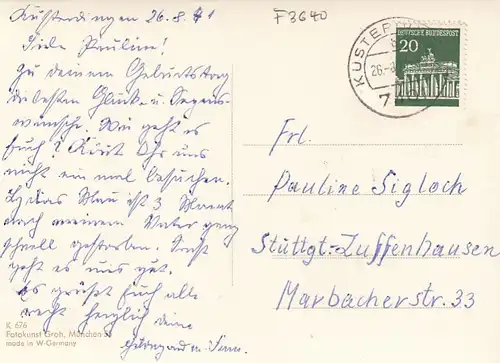 Kusterdingen 26.8.71
Liebe Pauline!
Zu deinem Geburtstag
die besten Glück- u. Segens-
wünsche. Wie geht es
Euch? Könnt Ihr uns
nicht ein mal besuchen.
Lydias Mann ist 3 Monat
nach meinem Vater ganz
schnell gestorben. Sonst
geht es uns gut.
Es grüßt Euch alle
recht herzlich deine
Hildegard u.
K 676
Fotokunst Groh, München
made in W-Germany
F3640
KUSTER
26.-8
7
DEUTSCHE BUNDESPOST
20
Frl.
Pauline Sigloch
Stuttgt.-Zuffenhausen
Marbacherstr. 33